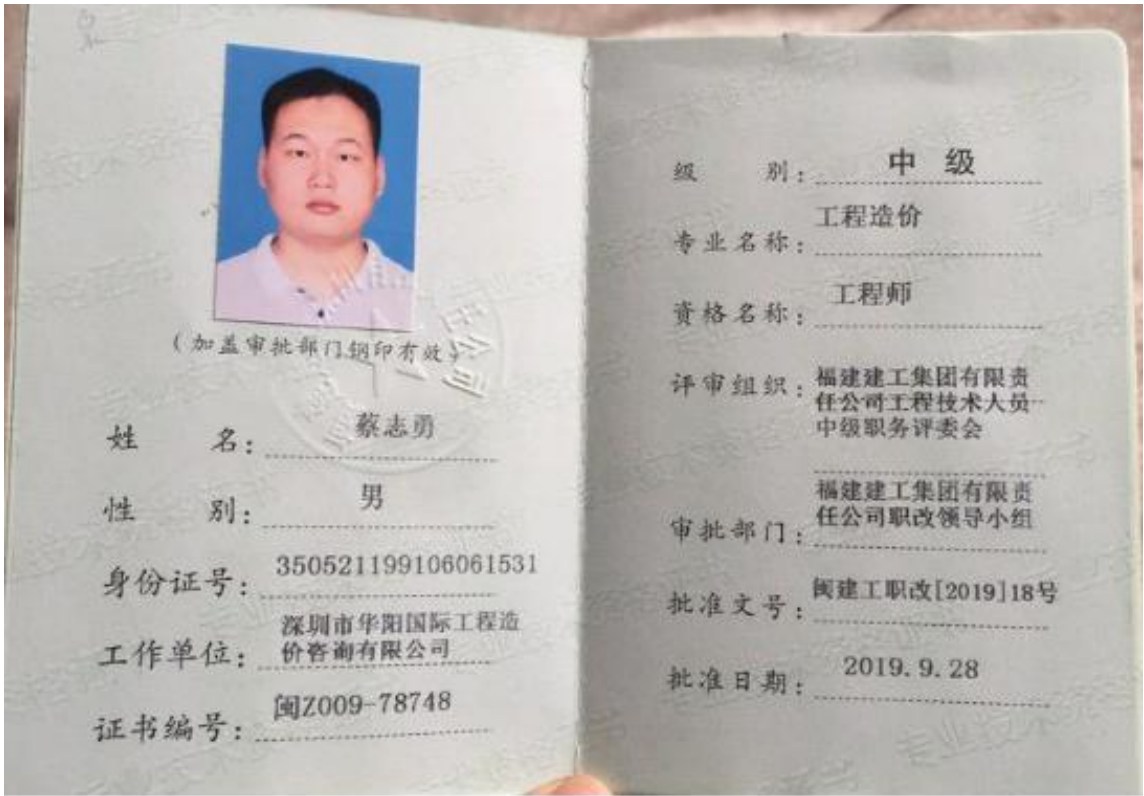 (加盖审批部门钢印有效)
姓 名: 蔡志勇
性 别: 男
身份证号: 350521199106061531
工作单位: 深圳市华阳国际工程造
价咨询有限公司
证书编号: 闽Z009-78748
级 别: 中 级
专业名称: 工程造价
资格名称: 工程师
评审组织: 福建建工集团有限责
任公司工程技术人员
中级职务评委会
审批部门: 福建建工集团有限责
任公司职改领导小组
批准文号: 闽建工职改[2019]18号
批准日期: 2019.9.28